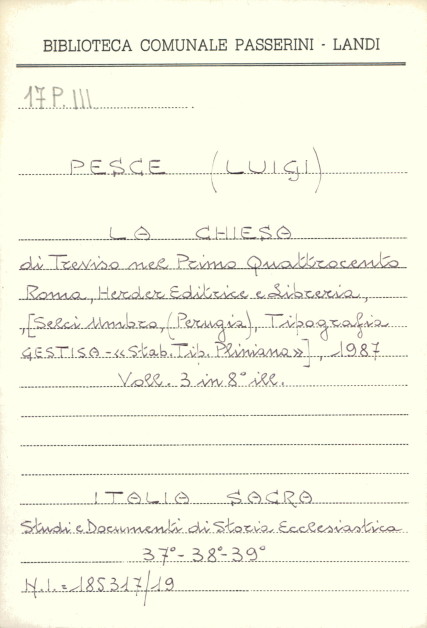 BIBLIOTECA COMUNALE PASSERINI - LANDI
17 P. III
PESCE (LUIGI)
LA CHIESA
di Treviso nel Primo Quattrocento
Roma, Herder Editrice e Libreria,
,[Selci Umbro, (Perugia), Tipografia
GESTISA - «Stab. Tib. Pliniana»], 1987
Voll. 3 in 8° ill.
ITALIA SACRA
Studi e Documenti di Storia Ecclesiastica
37° - 38° - 39°
N.I. = 185317/19